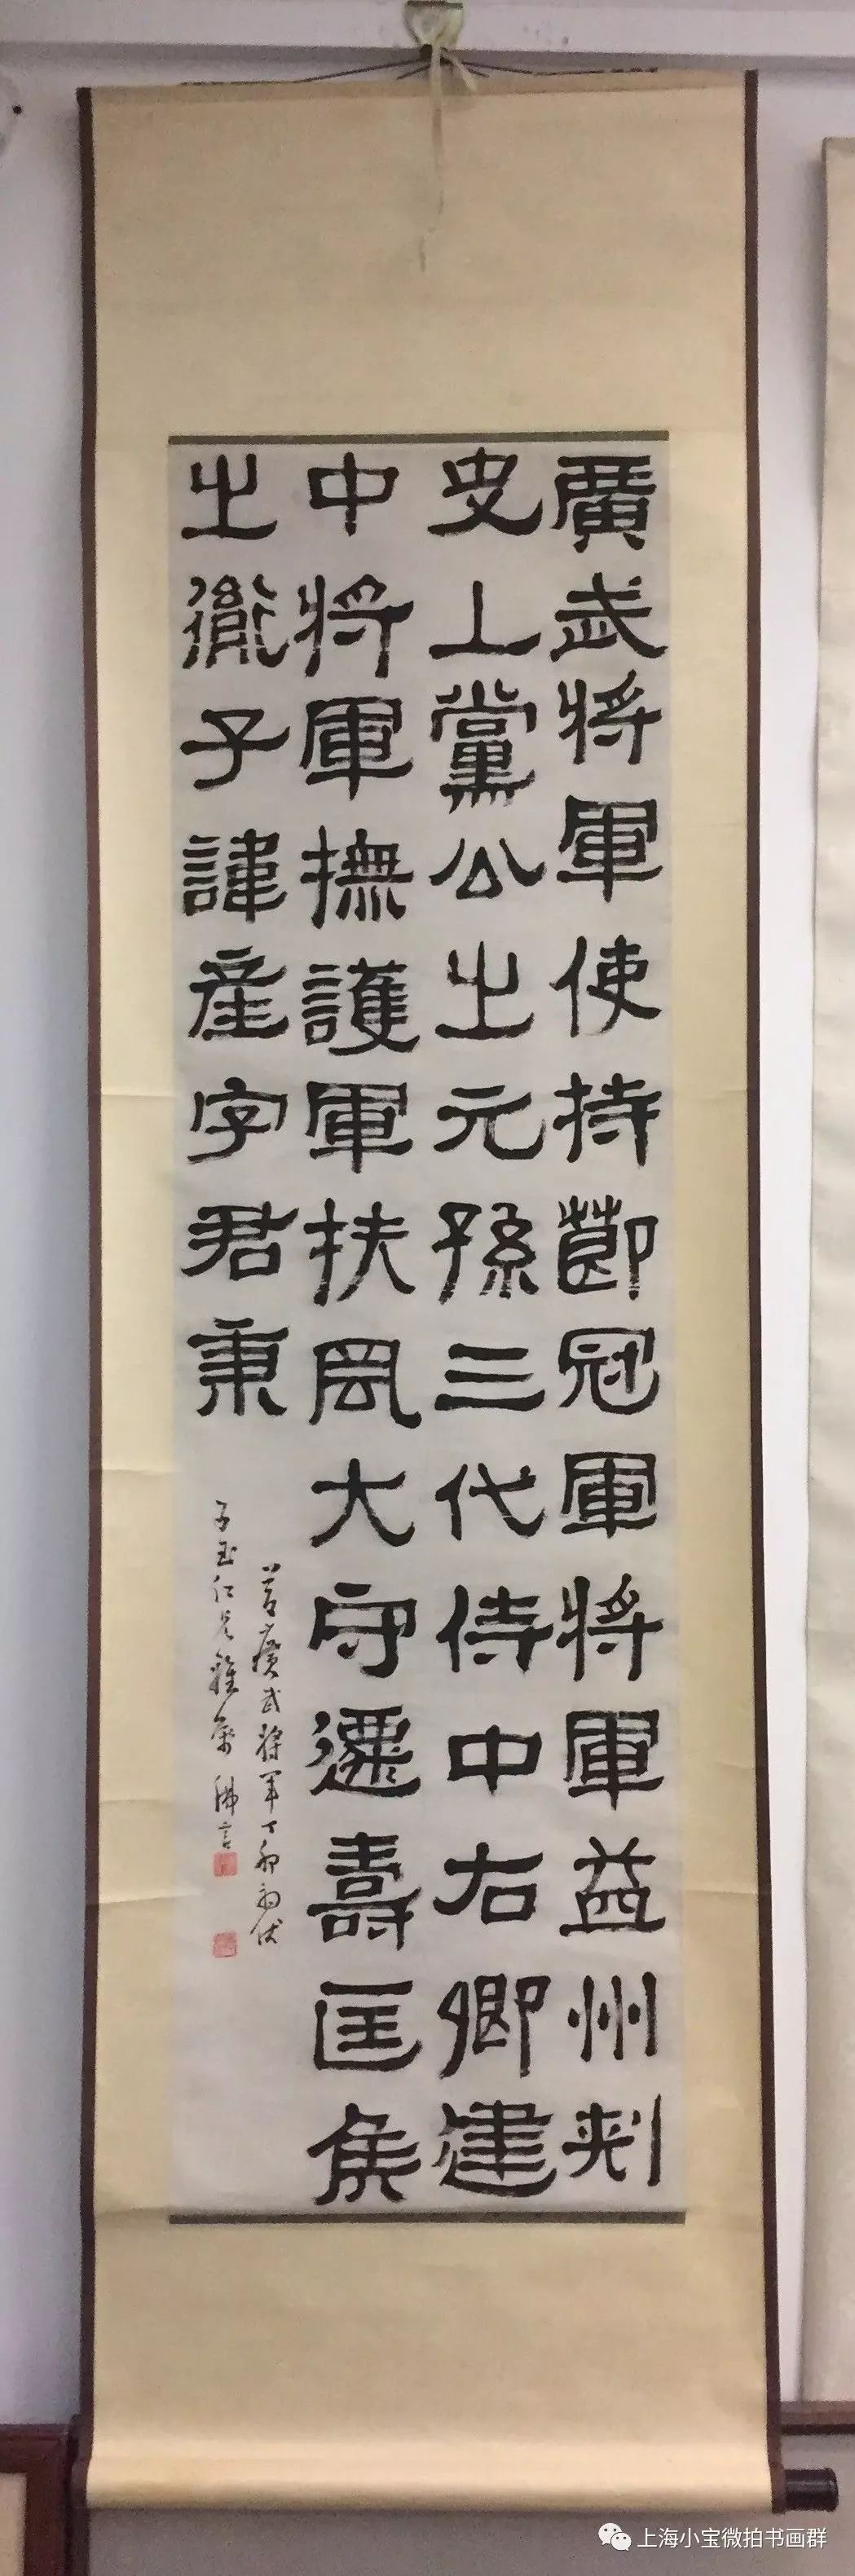 廣武將軍使持節冠軍將軍益州刺
史上黨公之元孫三代侍中右卿建
中將軍撫護軍扶風大守遷壽匡侯
之胤子諱産字君秉
廣武將軍丁卯初伏
子玉仁兄雅屬 佛言
上海小宝微拍书画群